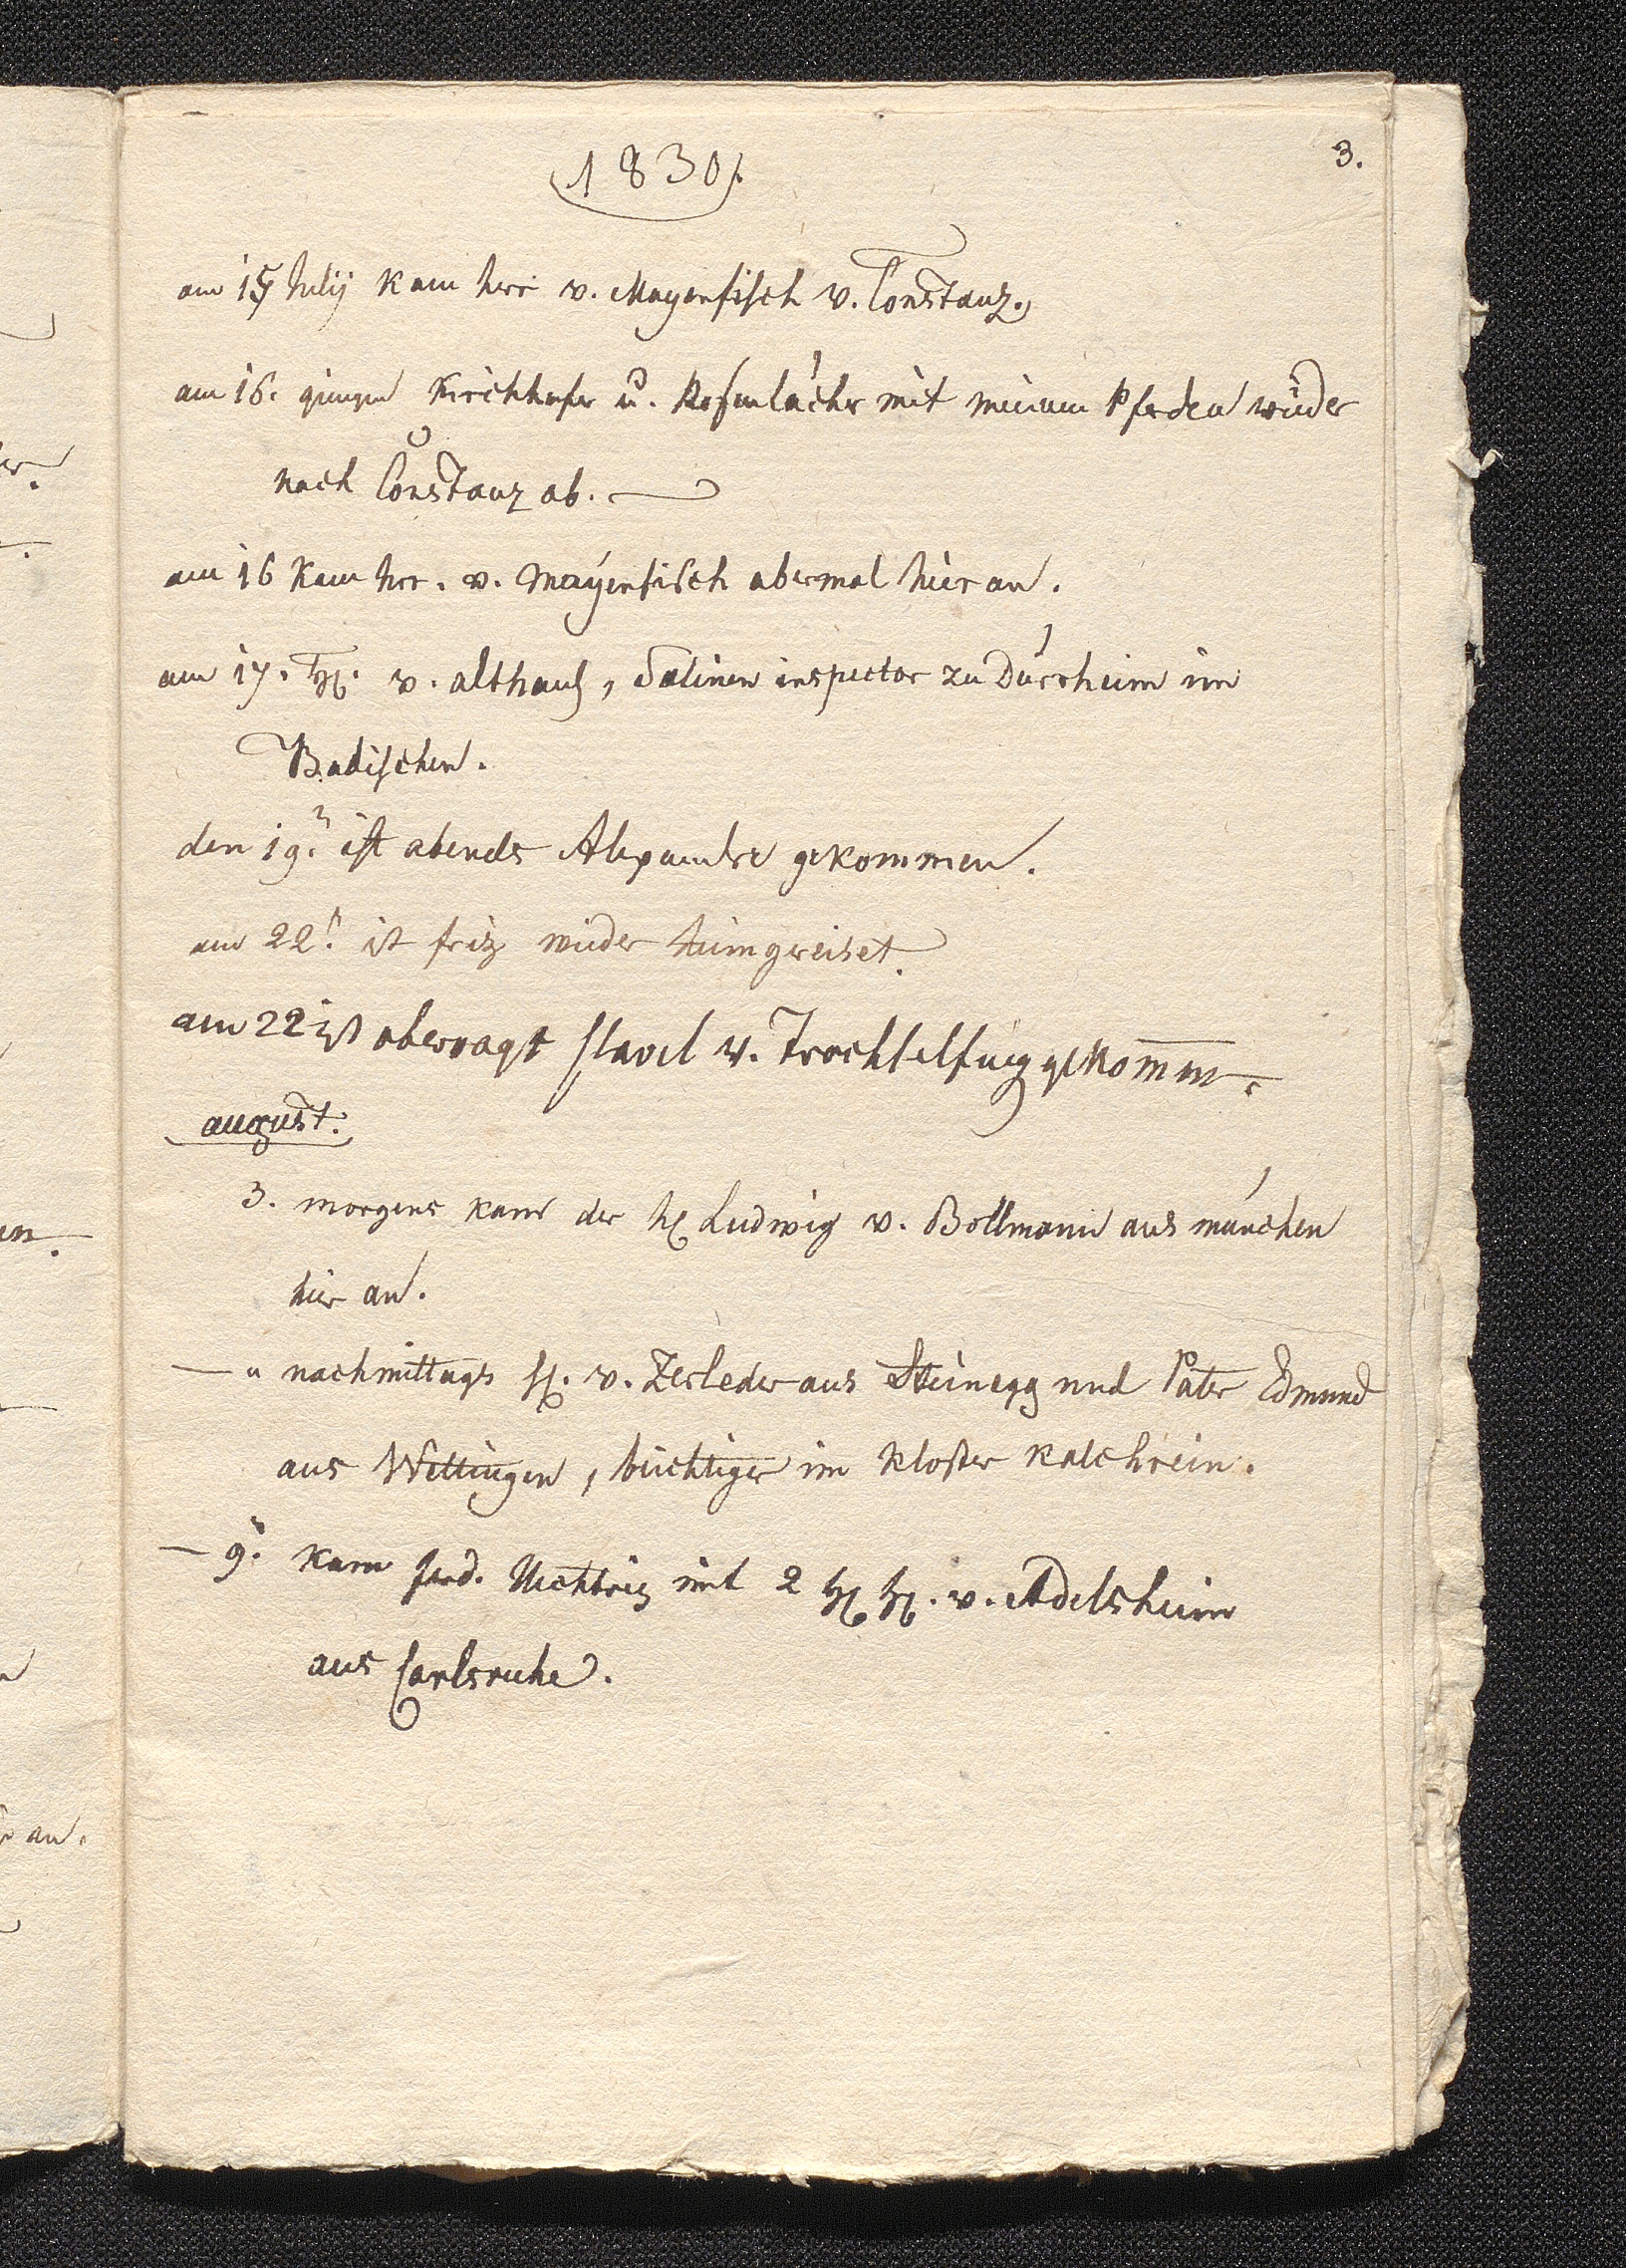 1830.
3.
am 15 Julij kam herr v. Mayenfisch v. Constanz.
am 16. giengen Kirchhofer u. Rosenlächer mit meinem Pferden wieder
nach Constanz ab. —
am 16 kam hrr. v. Mayenfisch abermal hier an.
am 17. H. v. althaus, Salinen inspector zu Dürrheim im
Badischen.
den 19. ist abends Alexandre gekommen.
am 22t. ist friz wieder heimgereiset.
am 22 ist obervogt v. Trochtelfing gekommen.
august.
3. morgens kam der H Ludwig v. Bollmann aus münchen
hier an.
— " nachmittags H. v. Zerleder aus Steinegg und Pater Edmund
aus Wettingen, beichtiger im Kloster Kalchrein.
— 9. kam ferd. Uechtriz mit 2 H H. v. Adelsheim
aus Carlsruhe.
er.
en.
an.